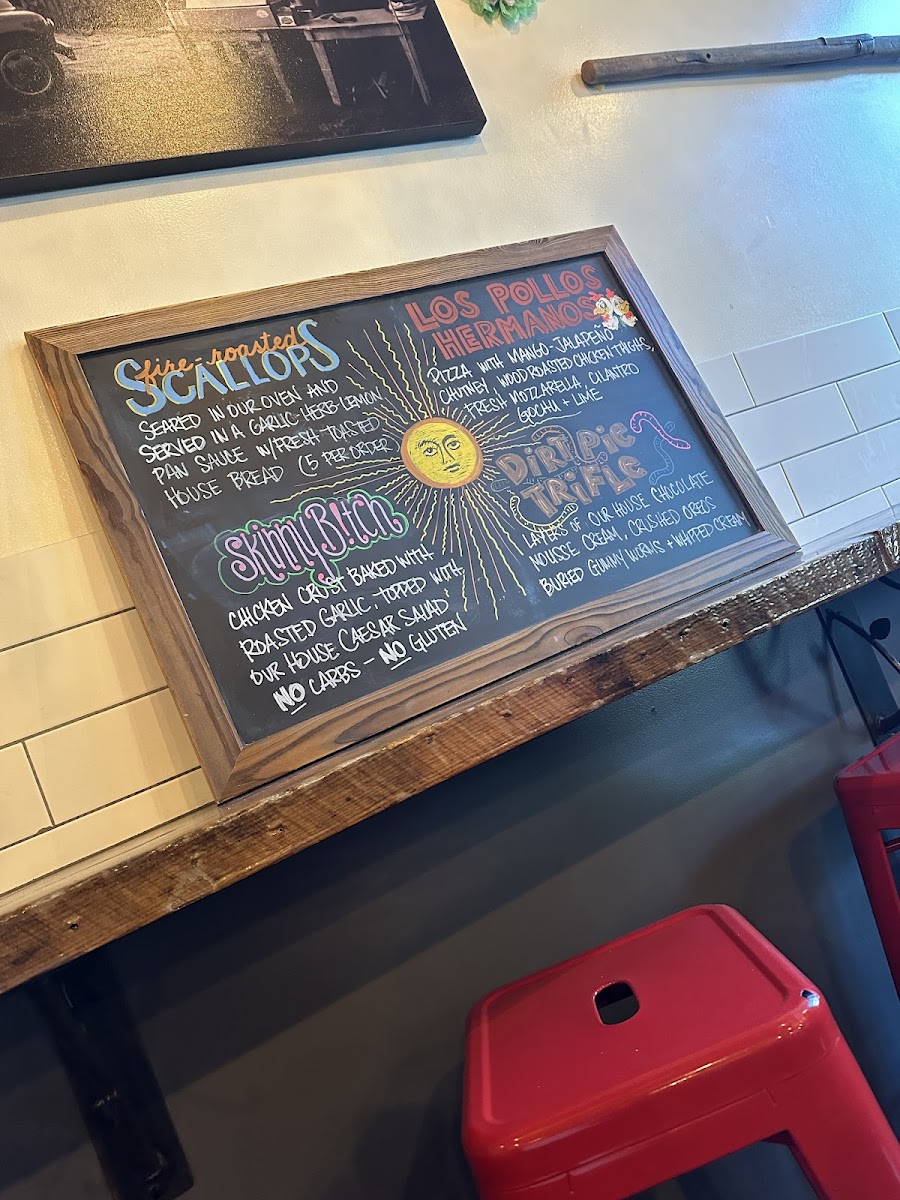 fire-roasted
SCALLOPS
SEARED IN OUR OVEN AND
SERVED IN A GARLIC-HERB-LEMON
PAN SAUCE W/FRESH-TOASTED
HOUSE BREAD (5 PER ORDER
SkinnyB!tch
CHICKEN CRUST BAKED WITH
ROASTED GARLIC, TOPPED WITH
OUR HOUSE CAESAR SALAD
NO CARBS - NO GLUTEN
LOS POLLOS
HERMANOS
PIZZA WITH MANGO-JALAPEÑO
CHUTNEY, WOOD ROASTED CHICKEN THIGHS,
FRESH MOZZARELLA, CILANTRO
+ LIME
DIRT PIE
TRIFLE
LAYERS OF OUR HOUSE CHOCOLATE
MOUSSE CREAM, CRUSHED OREOS
BURIED GUMMY WORMS + WHIPPED CREAM